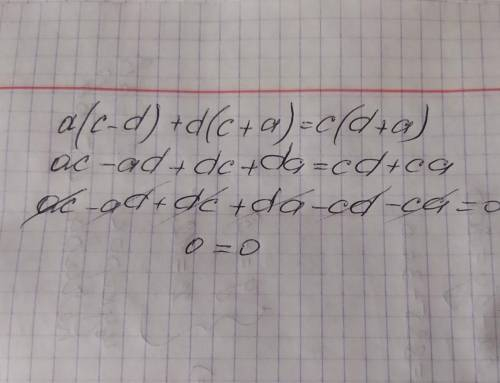 a(c-d)+d(c+a)=c(d+a)
ac-ad+dc+da=cd+ca
ac-ad+dc+da-cd-ca=0
0=0